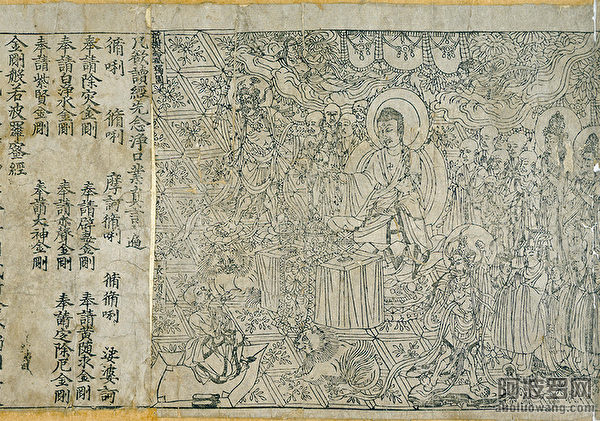 祇樹給孤獨園
長老須菩提
凡欲讀經先念淨口業真言一遍
脩唎 脩唎 摩訶脩唎 脩脩唎 娑婆訶
奉請除灾金剛 奉請辟毒金剛 奉請黃隨求金剛
奉請白淨水金剛 奉請赤聲金剛 奉請定除厄金剛
奉請紫賢金剛 奉請大神金剛
金剛般若波羅蜜經
阿波罗网
aboluowang.com